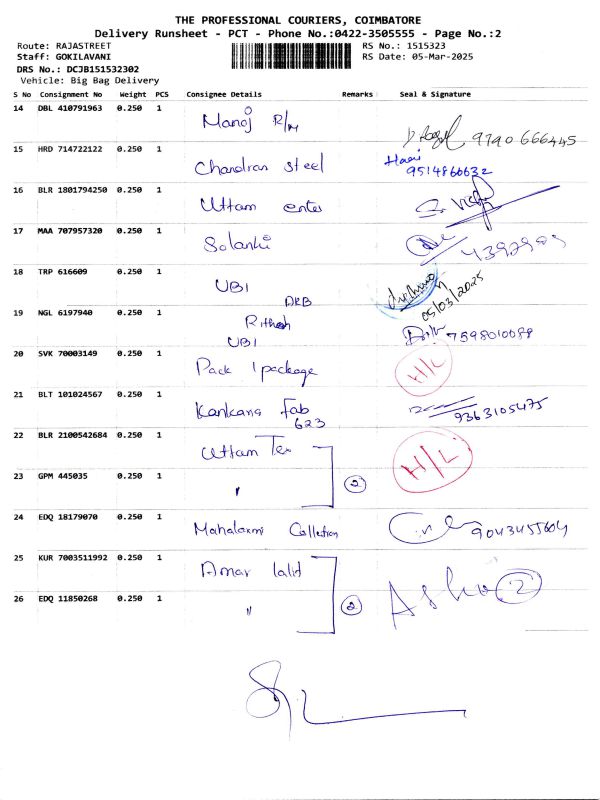 THE PROFESSIONAL COURIERS, COIMBATORE
Delivery Runsheet - PCT - Phone No.:0422-3505555 - Page No.:2
Route: RAJASTREET RS No.: 1515323
Staff: GOKILAVANI RS Date: 05-Mar-2025
DRS No.: DCJB151532302
Vehicle: Big Bag Delivery
S No Consignment No Weight PCS Consignee Details Remarks Seal & Signature
14 DBL 410791963 0.250 1 Manoj R/M 9790 666445
15 HRD 714722122 0.250 1 Chandran Steel Hari
9514860632
16 BLR 1801794250 0.250 1 Uttam enter
17 MAA 707957320 0.250 1 Solanki
18 TRP 616609 0.250 1 UBI 05/03/2025
19 NGL 6197940 0.250 1 Rithesh 7598010088
UBI
20 SVK 70003149 0.250 1 Pack 1 package H/L
21 BLT 101024567 0.250 1 Kankana Fab 9363105475
623
22 BLR 2100542684 0.250 1 Uttam Tex H/L
23 GPM 445035 0.250 1 " 2
24 EDQ 18179070 0.250 1 Mahalaxmi Collection 9043455604
25 KUR 7003511992 0.250 1 Amar lalit
26 EDQ 11850268 0.250 1 " 2 2